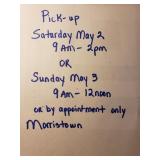 Pick-up
Saturday May 2
9 Am - 2pm
OR
Sunday May 3
9 Am - 12noon
or by appointment only
Morristown